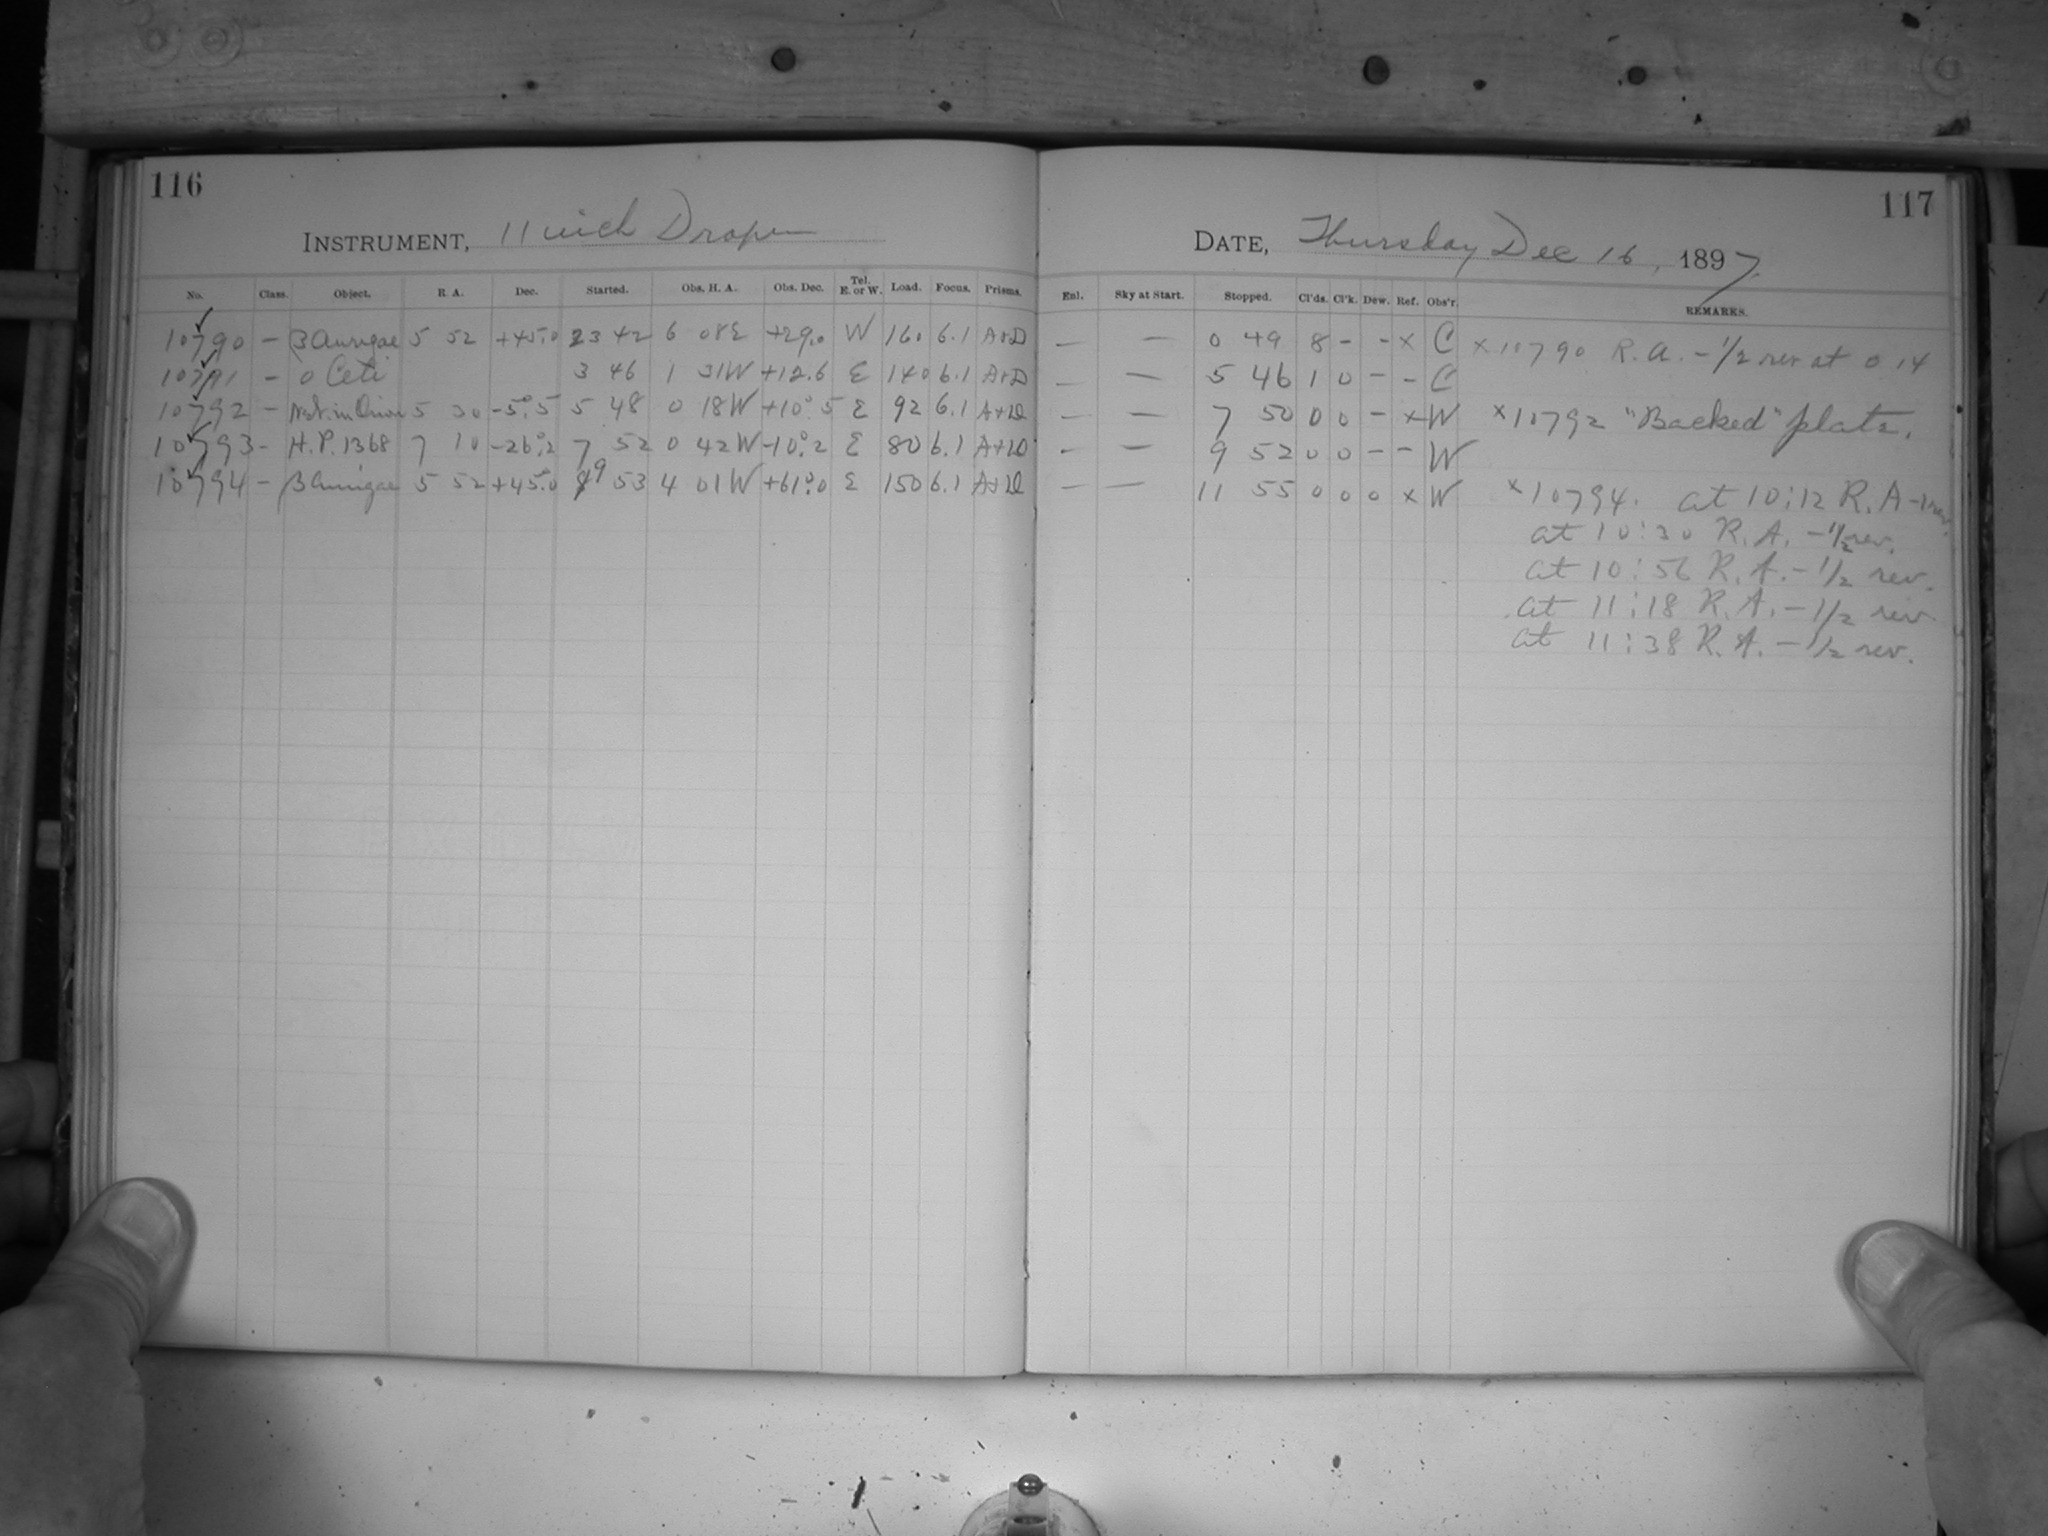 116
INSTRUMENT, 11 inch Draper
No. Class. Object. R. A. Dec. Started. Obs. H. A. Obs. Dec. Tel. E. or W. Load. Focus. Prisms.
10790 - β Aurigae 5 52 +45.0 23 42 6 08E +29.0 W 160 6.1 A+D
10791 - o Ceti 3 46 1 31W +12.6 E 140 6.1 A+D
10792 - Neb. in Orion 5 30 -5°.5 5 48 0 18W +10°.5 E 92 6.1 A+D
10793 - H.P. 1368 7 10 -26°.2 7 52 0 42W -10°.2 E 80 6.1 A+D
10794 - β Aurigae 5 52 +45°.0 9 53 4 01W +61°.0 E 150 6.1 A+D
117
DATE, Thursday Dec 16, 1897
Enl. Sky at Start. Stopped. Cl'ds. Cl'k. Dew. Ref. Obs'r. REMARKS.
— — 0 49 8 - - x C x10790 R.A. - 1/2 rev at 0 14
— — 5 46 1 0 - - C
— — 7 50 0 0 - x W x10792 "Backed" plate.
— — 9 52 0 0 - - W
— — 11 55 0 0 0 x W x10794. at 10:12 R.A - 1 rev.
at 10:30 R.A. - 1/2 rev.
at 10:56 R.A. - 1/2 rev.
at 11:18 R.A. - 1/2 rev
at 11:38 R.A. - 1/2 rev.